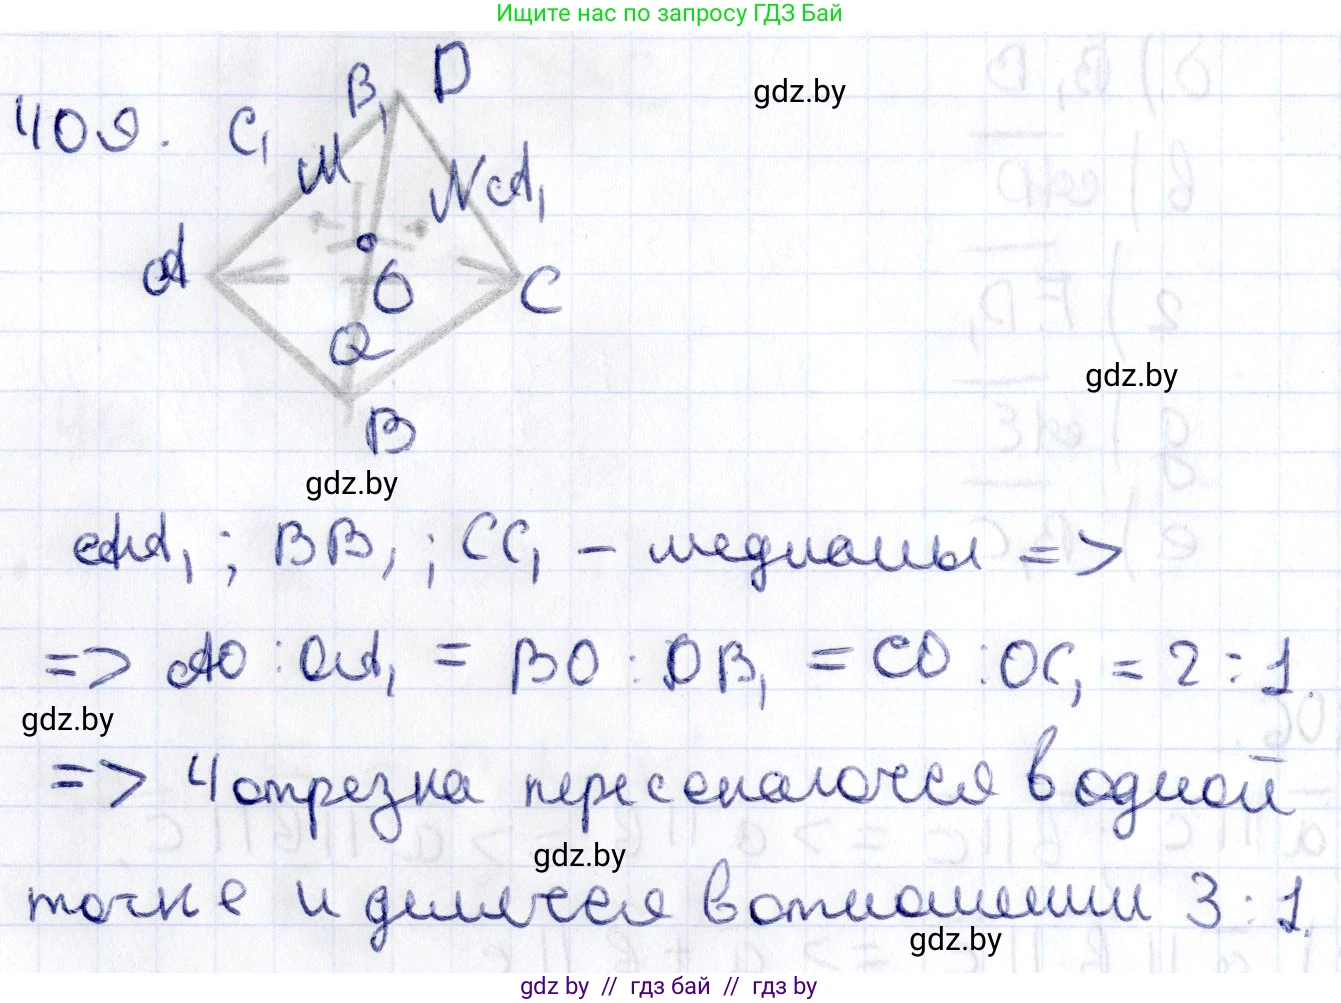 Ищите нас по запросу ГДЗ Бай
gdz.by
409.
C₁
M
B₁
D
N
A₁
A
O
C
Q
B
gdz.by
gdz.by
AA₁ ; BB₁ ; CC₁ – медианы =>
=> AO : OA₁ = BO : OB₁ = CO : OC₁ = 2 : 1.
gdz.by
=> 4 отрезка пересекаются в одной
gdz.by
точке и делятся в отношении 3 : 1.
gdz.by
gdz by // гдз бай // гдз by